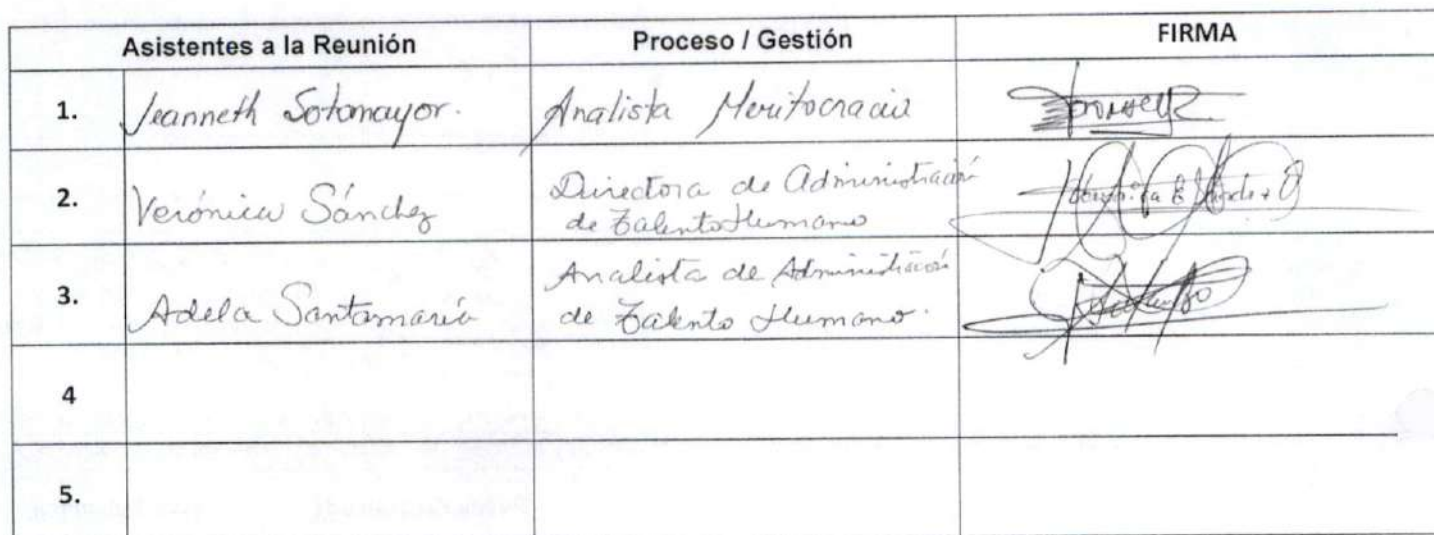 Asistentes a la Reunión Proceso / Gestión FIRMA
1. Jeanneth Sotomayor. Analista Meritocracia
2. Verónica Sánchez Directora de Administración
de Talento Humano
3. Adela Santamaría Analista de Administración
de Talento Humano.
4
5.